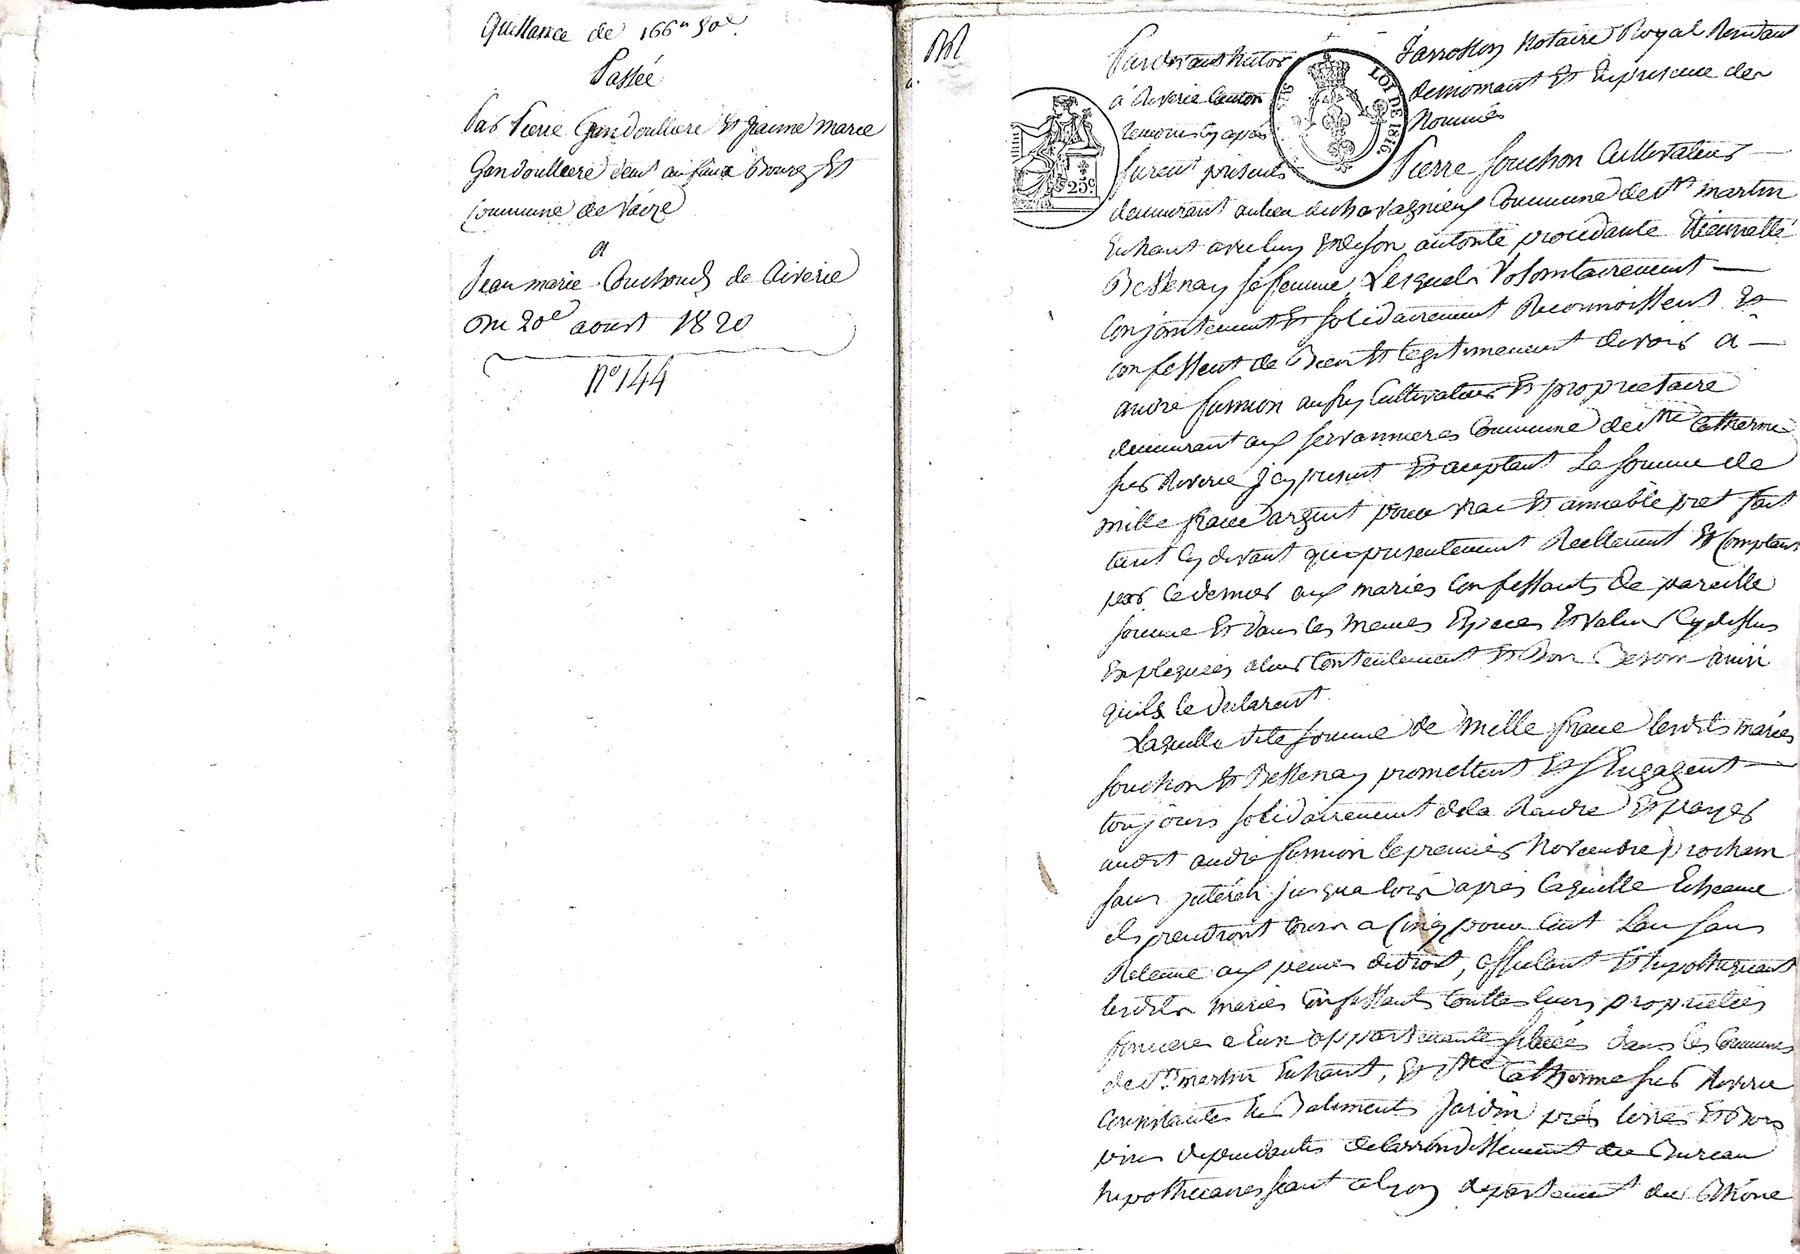 Quittance de 166" 50c.
Passée
Par Pierre Gandoulliere et Jeanne marie
Gandoulliere demt au faux Bourg et
commune de Vaize
a
Jean marie Couchoud de Riverie
Du 20e aoust 1820
N° 144
Pardevant Victor Farrossson Notaire Royal Residant
a Riverie Canton de mornant Et En presence des
temoins cy apres Nommés
LOI DE 1816.
25c
furent presents Pierre Souchon Cultivateur
demeurant au lieu de Commune de St martin
En haut avec luy et de son autorité procédante Etiennette
Bessenay sa femme, Lesquels Volontairement
Conjointement et Solidairement Reconnoissent et
confessent de Bien et legitimement devoir a
andre cultivateur et proprietaire
demeurant aux Servannieres Commune de Ste Catherine
sur Riverie Jcy present et acceptant La somme de
mille francs argent pour vrai et amiable pret fait
tant cy devant que presentement Reellement et Comptant
par ce dernier aux mariés confessants de pareille
somme et dans les memes Especes et valeur Cy dessus
Expliquées a leur contentement et Bon Besoin ainsi
quils le declarent
Laquelle dite somme de mille francs lesdits mariés
Souchon et Bessenay promettent et s'Engagent
toujours solidairement de la Rendre et payer
audit andre le premier Novembre prochain
sans jnterets jusqua lors apres laquelle Echeance
ils prendront cours a Cinq pour cent L'an sans
Retenue aux peines de droit, affectant et hypothequant
lesdits mariés confessants toutes leurs proprietées
foncieres a Eux appartenantes situées dans les Communes
de St martin En haut, et Ste Catherine sur Riverie
consistantes En Batiments Jardin prés terres et Bois
pins dependantes de larrondissement du Bureau
hypothecaires seant a Lyon departement du Rhône